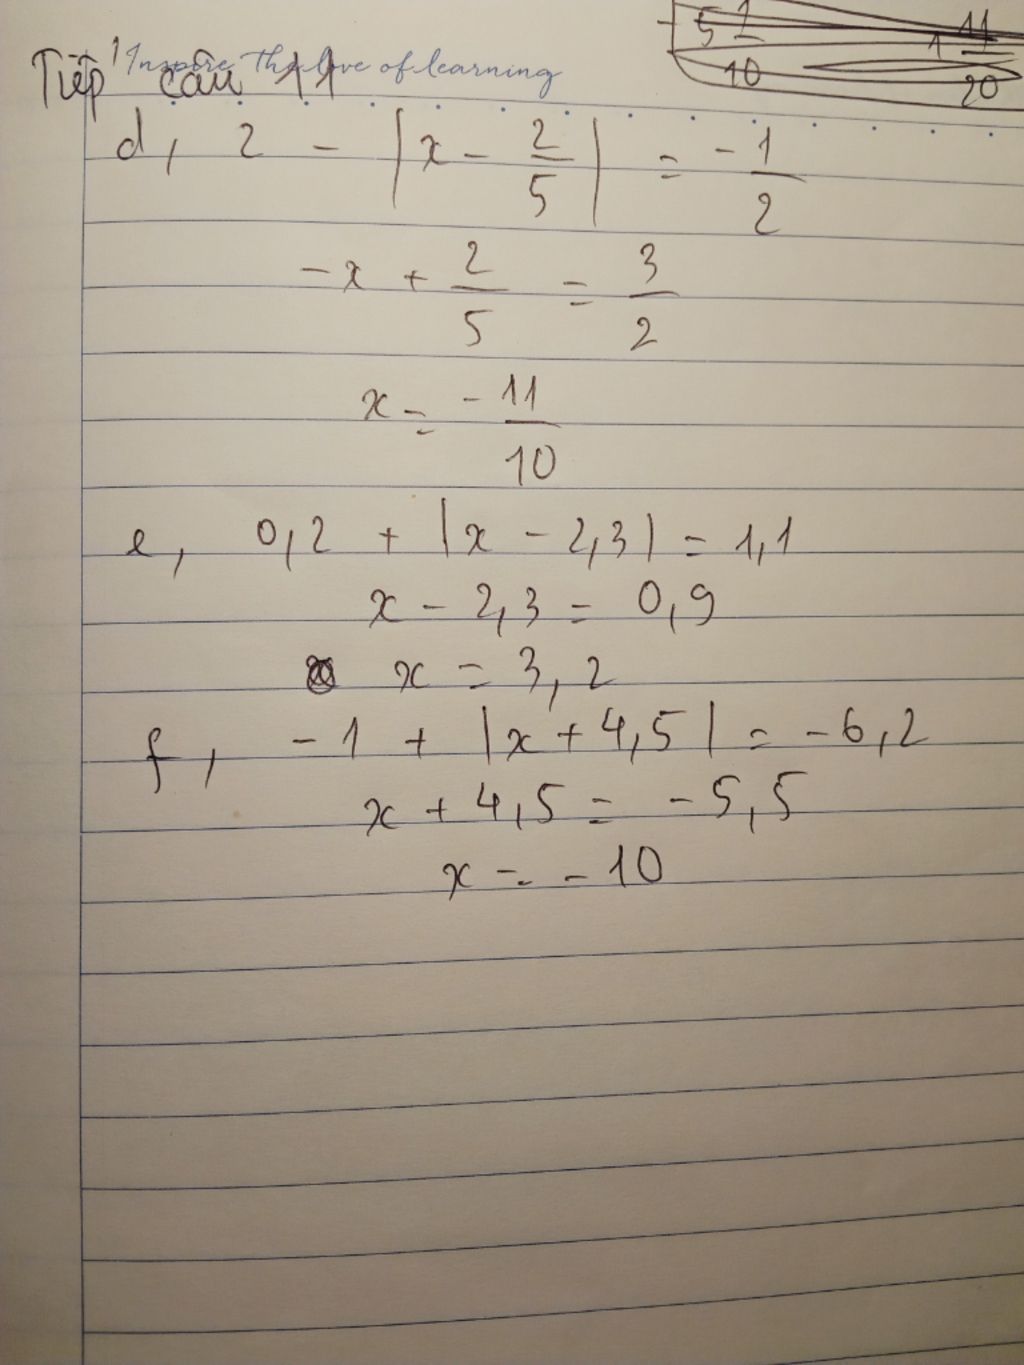 - 5 1/10 1 11/20
Inspire the love of learning
Tiếp câu 11
d, 2 - |x - 2/5| = -1/2
-x + 2/5 = 3/2
x = -11/10
e, 0,2 + |x - 2,3| = 1,1
x - 2,3 = 0,9
x = 3,2
f, -1 + |x + 4,5| = -6,2
x + 4,5 = -5,5
x = -10